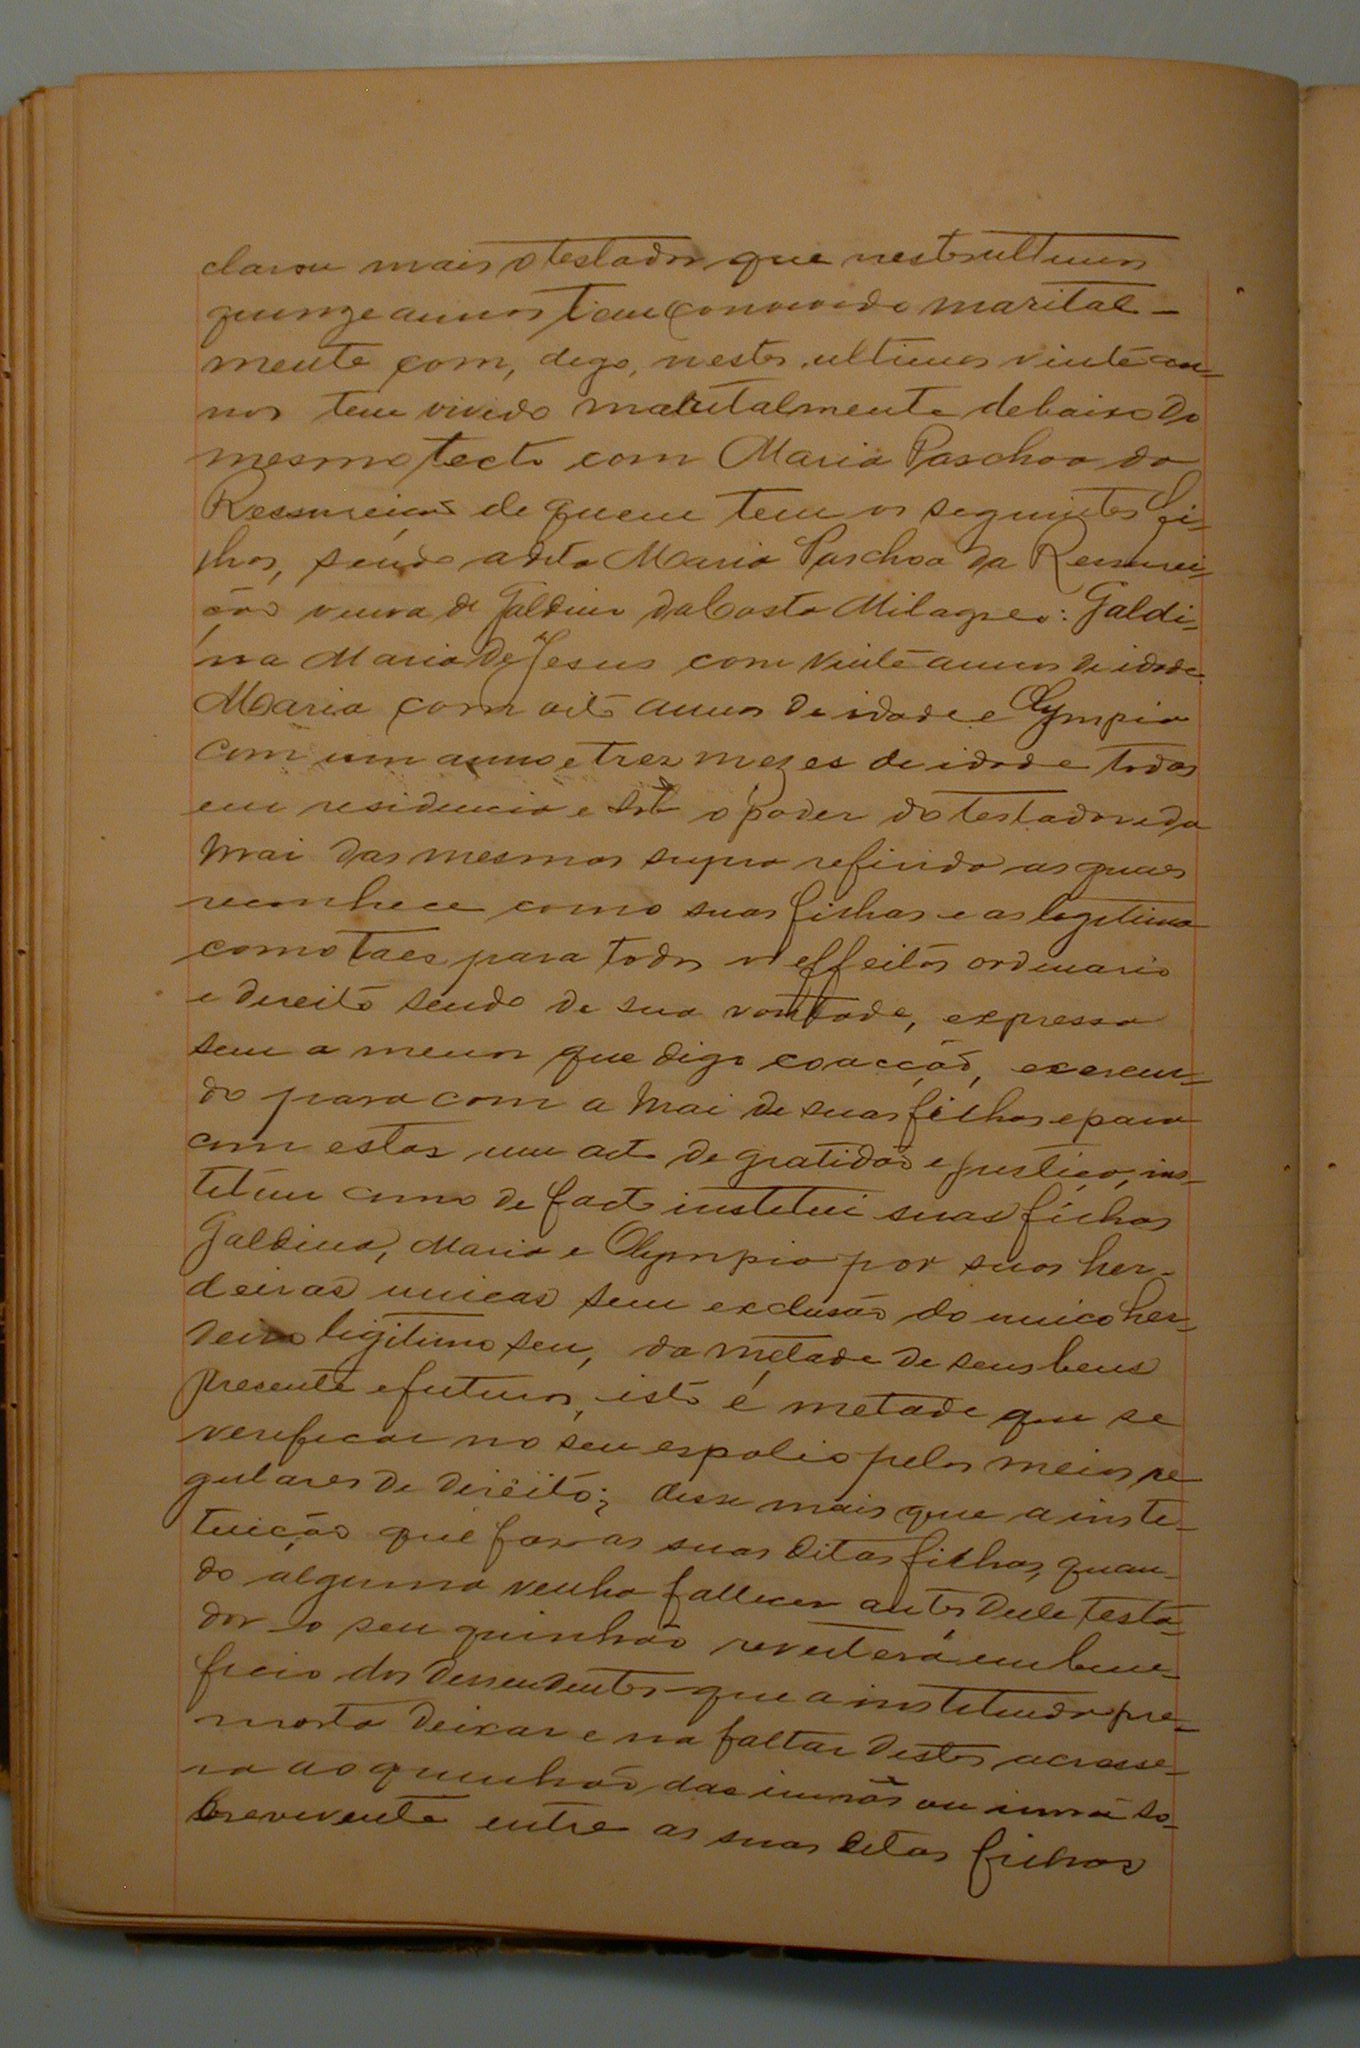 clarou mais o testador que nestes ultimos
quinze annos tem convivido marital-
mente com, digo, nestes ultimos vinte an-
nos tem vivido maritalmente debaixo do
mesmo tecto com Maria Paschoa da
Ressureição de quem tem os seguintes fi-
lhos, sendo a dita Maria Paschoa da Ressurei-
ção viuva de Galdino da Costa Milagres: Galdi-
na Maria de Jesus com vinte annos de idade
Maria com oito annos de idade e Olympia
com um anno e trez mezes de idade todas
em residencia e sob o poder do testador e da
mai das mesmas supra referida as quaes
reconhece como suas filhas e as legitima
como taes para todos os effeitos ordinario
e direito sendo de sua vontade, expressa
sem a menor que digo coacção, exercen-
do para com a mai de suas filhas e para
com estas um acto de gratidão e justiça, ins-
tituiu como de facto institui suas filhas
Galdina, Maria e Olympia por suas her-
deiras unicas sem exclusão do unico her-
deiro legitimo seu, da metade de seus bens
presente e futuros, isto é metade que se
verificar no seu espolio pelos meios re
gulares de direito; disse mais que a insti-
tuição que faz as suas ditas filhas, quan-
do alguma venha fallecer antes delle testa-
dor o seu quinhão reverterá em bene-
ficio dos descendentes que a instituida pre-
morta deixar e na faltar destes acresce-
ra ao quinhão das irmãs ou irmã so-
brevivente entre as suas ditas filhas